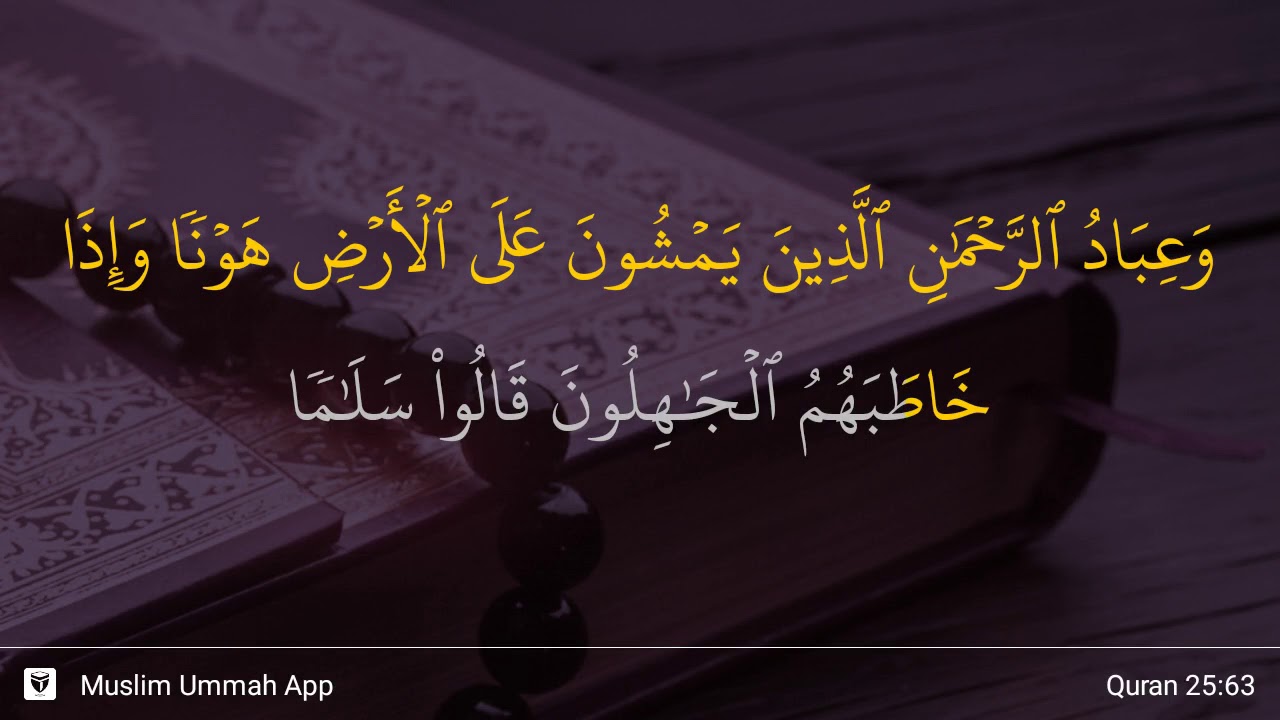 وَعِبَادُ ٱلرَّحْمَٰنِ ٱلَّذِينَ يَمْشُونَ عَلَى ٱلْأَرْضِ هَوْنًا وَإِذَا
خَاطَبَهُمُ ٱلْجَٰهِلُونَ قَالُوا۟ سَلَٰمًا
Muslim Ummah App
Quran 25:63